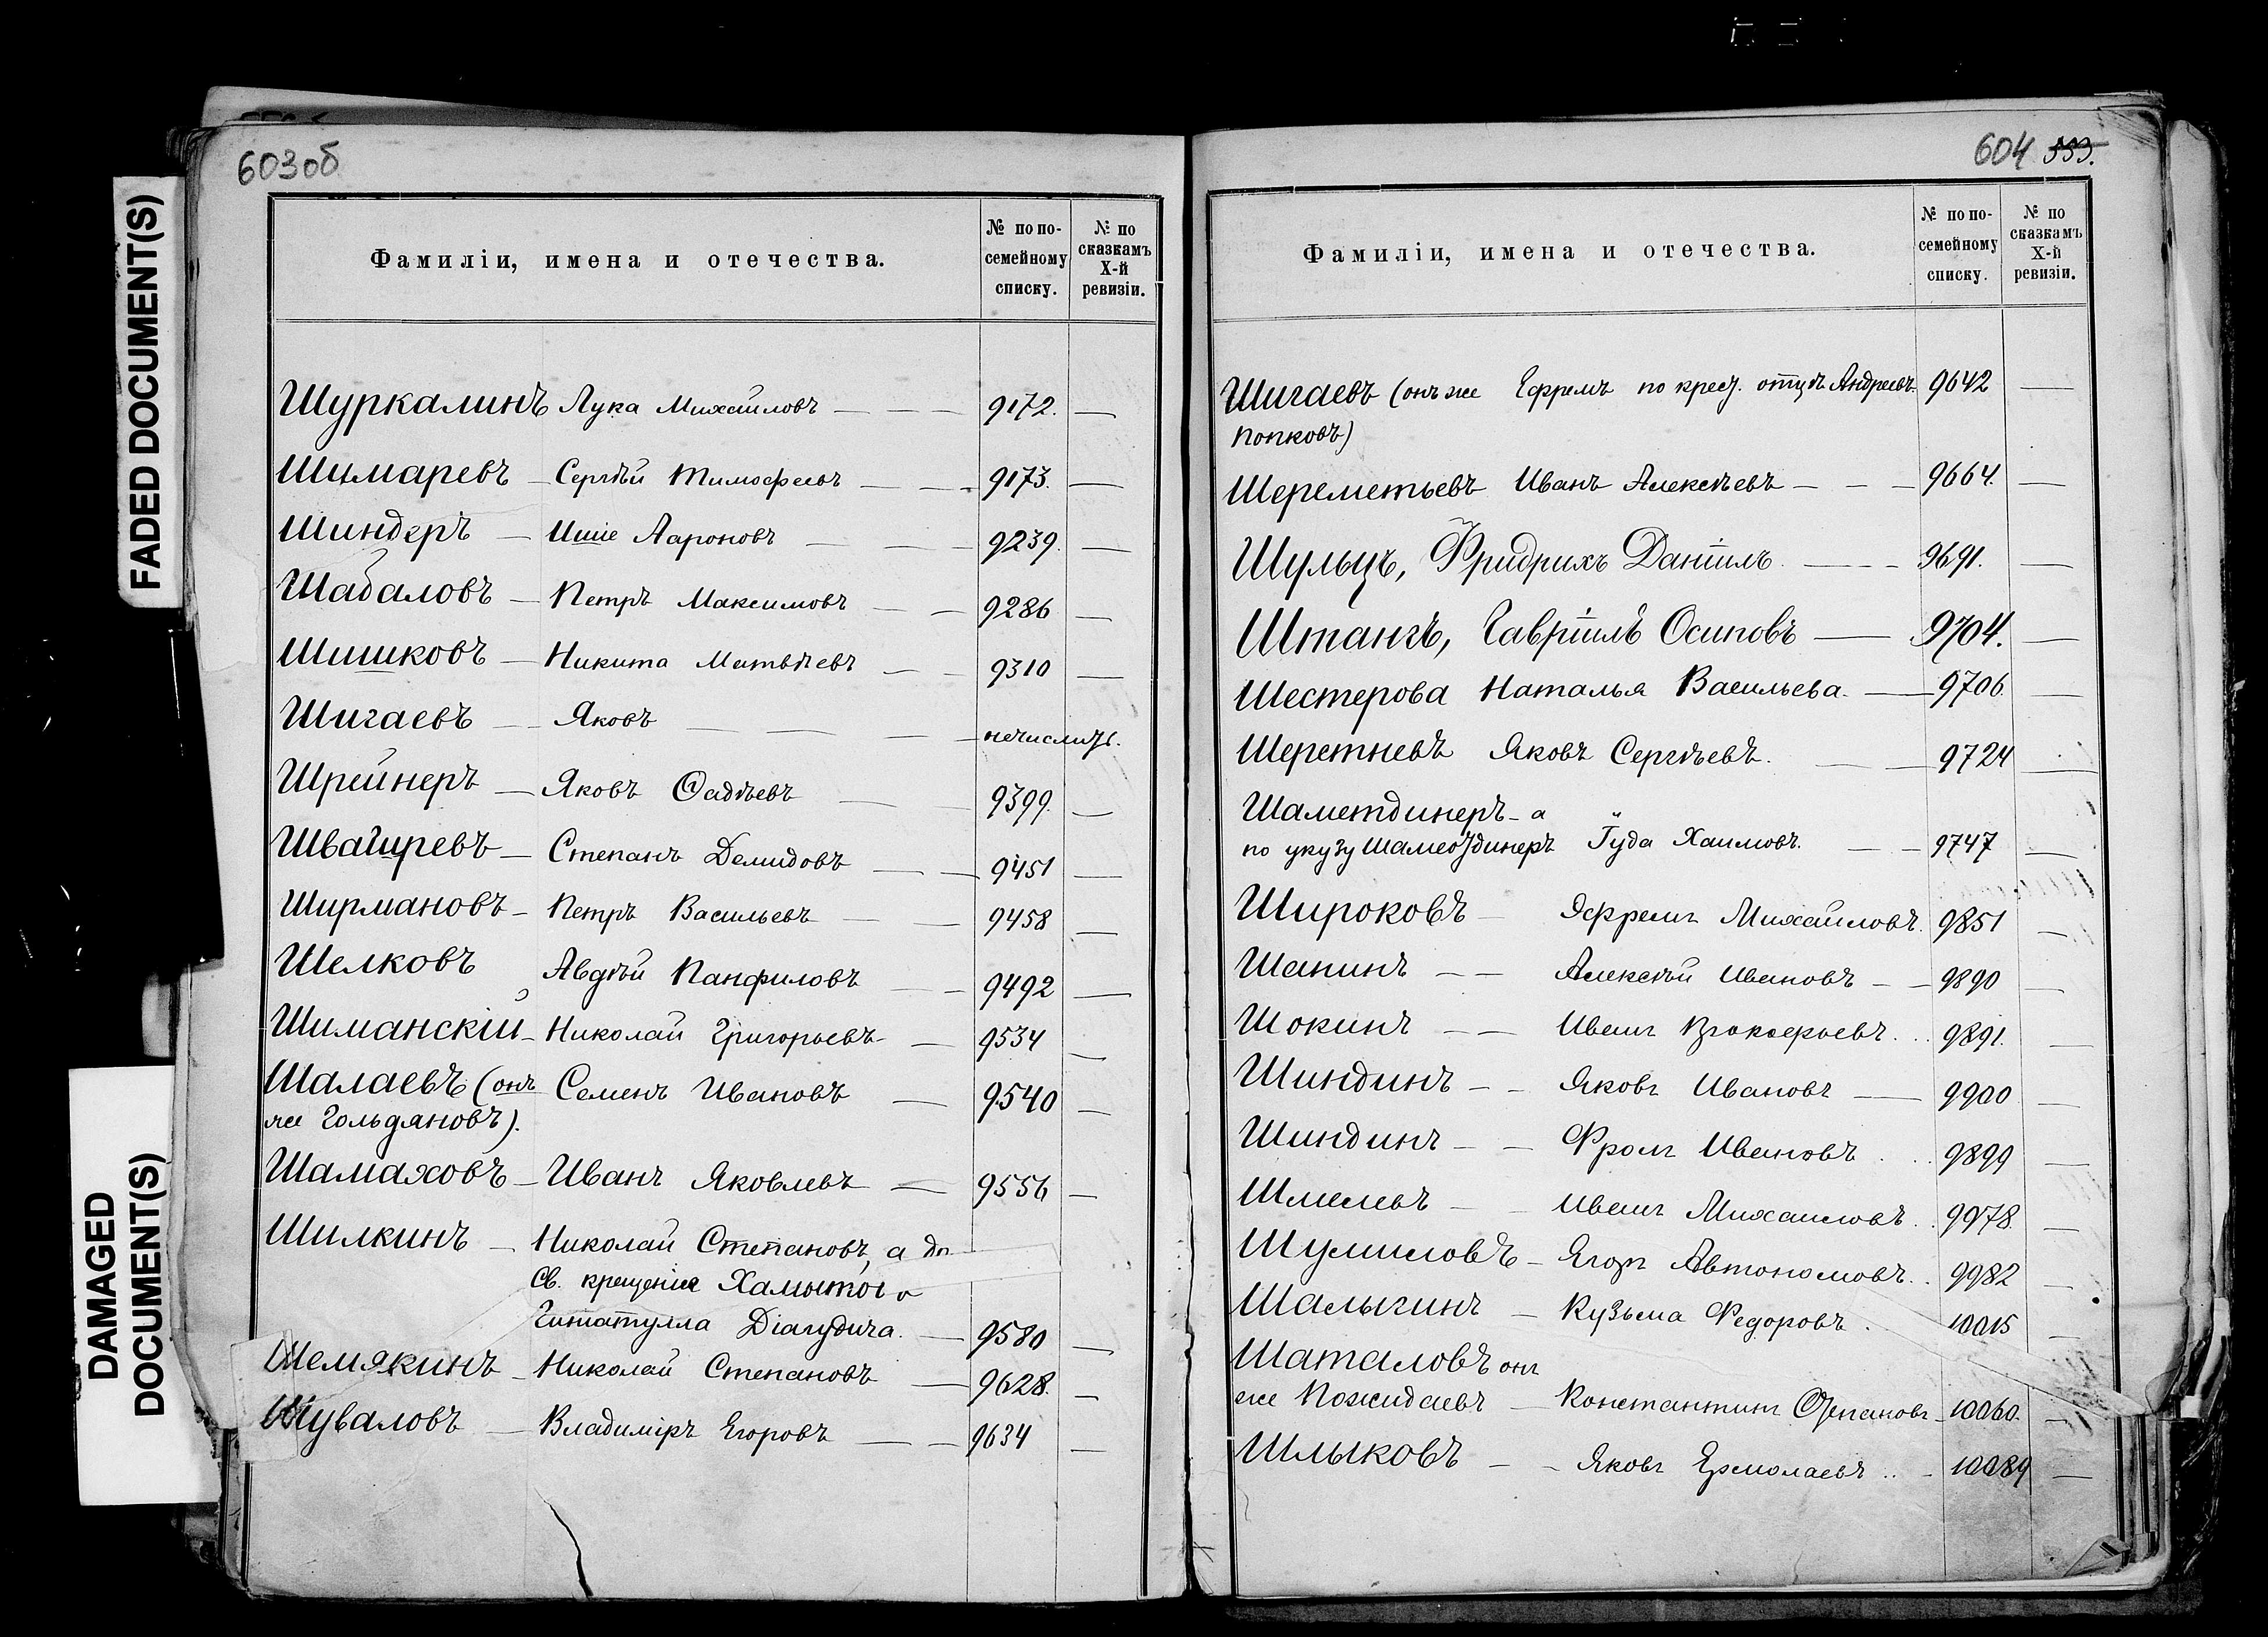 FADED DOCUMENT(S)
DAMAGED
DOCUMENT(S)
603об
Фамиліи, имена и отечества.
№ по по-
семейному
списку.
№ по
сказкамъ
X-й
ревизіи.
Шуркалинъ Лука Михайловъ — — — 9172. —
Шимаревъ — Сергѣй Тимофеевъ — — 9173. —
Шиндеръ — Ицие Аароновъ — — — 9239. —
Шабаловъ — Петръ Максимовъ — — 9286 —
Шишковъ — Никита Матвѣевъ — — 9310 —
Шигаевъ — Яковъ — — — —
Шрейнеръ — Яковъ Ѳадѣевъ — — 9399. —
Степанъ Демидовъ — — 9451 —
Ширмановъ — Петръ Васильевъ — — 9458 —
Шелковъ Авдѣй Панфиловъ — — 9492 —
Шиманскій — Николай Григорьевъ — — 9534 —
Шалаевъ (онъ Семенъ Ивановъ — 9540 —
же Гольдяновъ).
Шамаховъ — Иванъ Яковлевъ — 9556 —
Шилкинъ — Николай Степановъ, а до
Св. крещенія
— 9580 —
Шемякинъ — Николай Степановъ — 9628. —
Шуваловъ — Владиміръ Егоровъ — — 9634 —
604 553.
Фамиліи, имена и отечества.
№ по по-
семейному
списку.
№ по
сказкамъ
X-й
ревизіи.
Шигаевъ (онъ же Ефремъ по крест. отцѣ Андреевъ 9642 —
Попковъ)
Шереметьевъ Иванъ Алексѣевъ — — — 9664. —
Шульцъ, Фридрихъ Даніилъ. — — — 9691. —
Штангъ, Гавріилъ Осиповъ — 9704. —
Шестерова Наталья Васильева. — 9706. —
Шеретневъ Яковъ Сергѣевъ. — — 9724 —
Шаметдинеръ — а
по указу Шамеотдинеръ Іуда Хаимовъ. — — 9747 —
Широковъ — Эфремъ Михайловъ. 9851 —
Шанинъ — — Алексѣй Ивановъ — — 9890 —
Шокинъ — — Иванъ Прокофьевъ. .. 9891. —
Шиндинъ — — Яковъ Ивановъ — 9900 —
Шиндинъ — — Фролъ Ивановъ . .. 9899 —
Шмелевъ — — Иванъ Михайловъ. .. 9978. —
Шумиловъ — Егоръ Автономовъ. . 9982 —
Шалыгинъ — Кузьма Федоровъ . 10015 —
Шаталовъ онъ
же Пожидаевъ — Константинъ Степановъ — 10060. —
Шлыковъ — — Яковъ Ермолаевъ .. — 10084 —